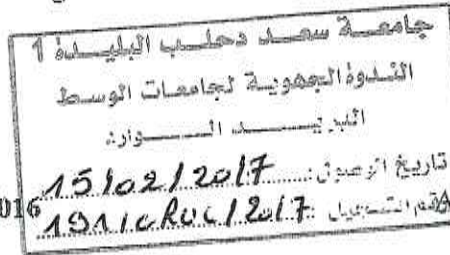 جامعة سعد دحلب البليدة 1
الندوة الجهوية لجامعات الوسط
البريد الوارد
تاريخ الوصول: 15/02/2017
رقم التسجيل: 191/CRUC/2017
016